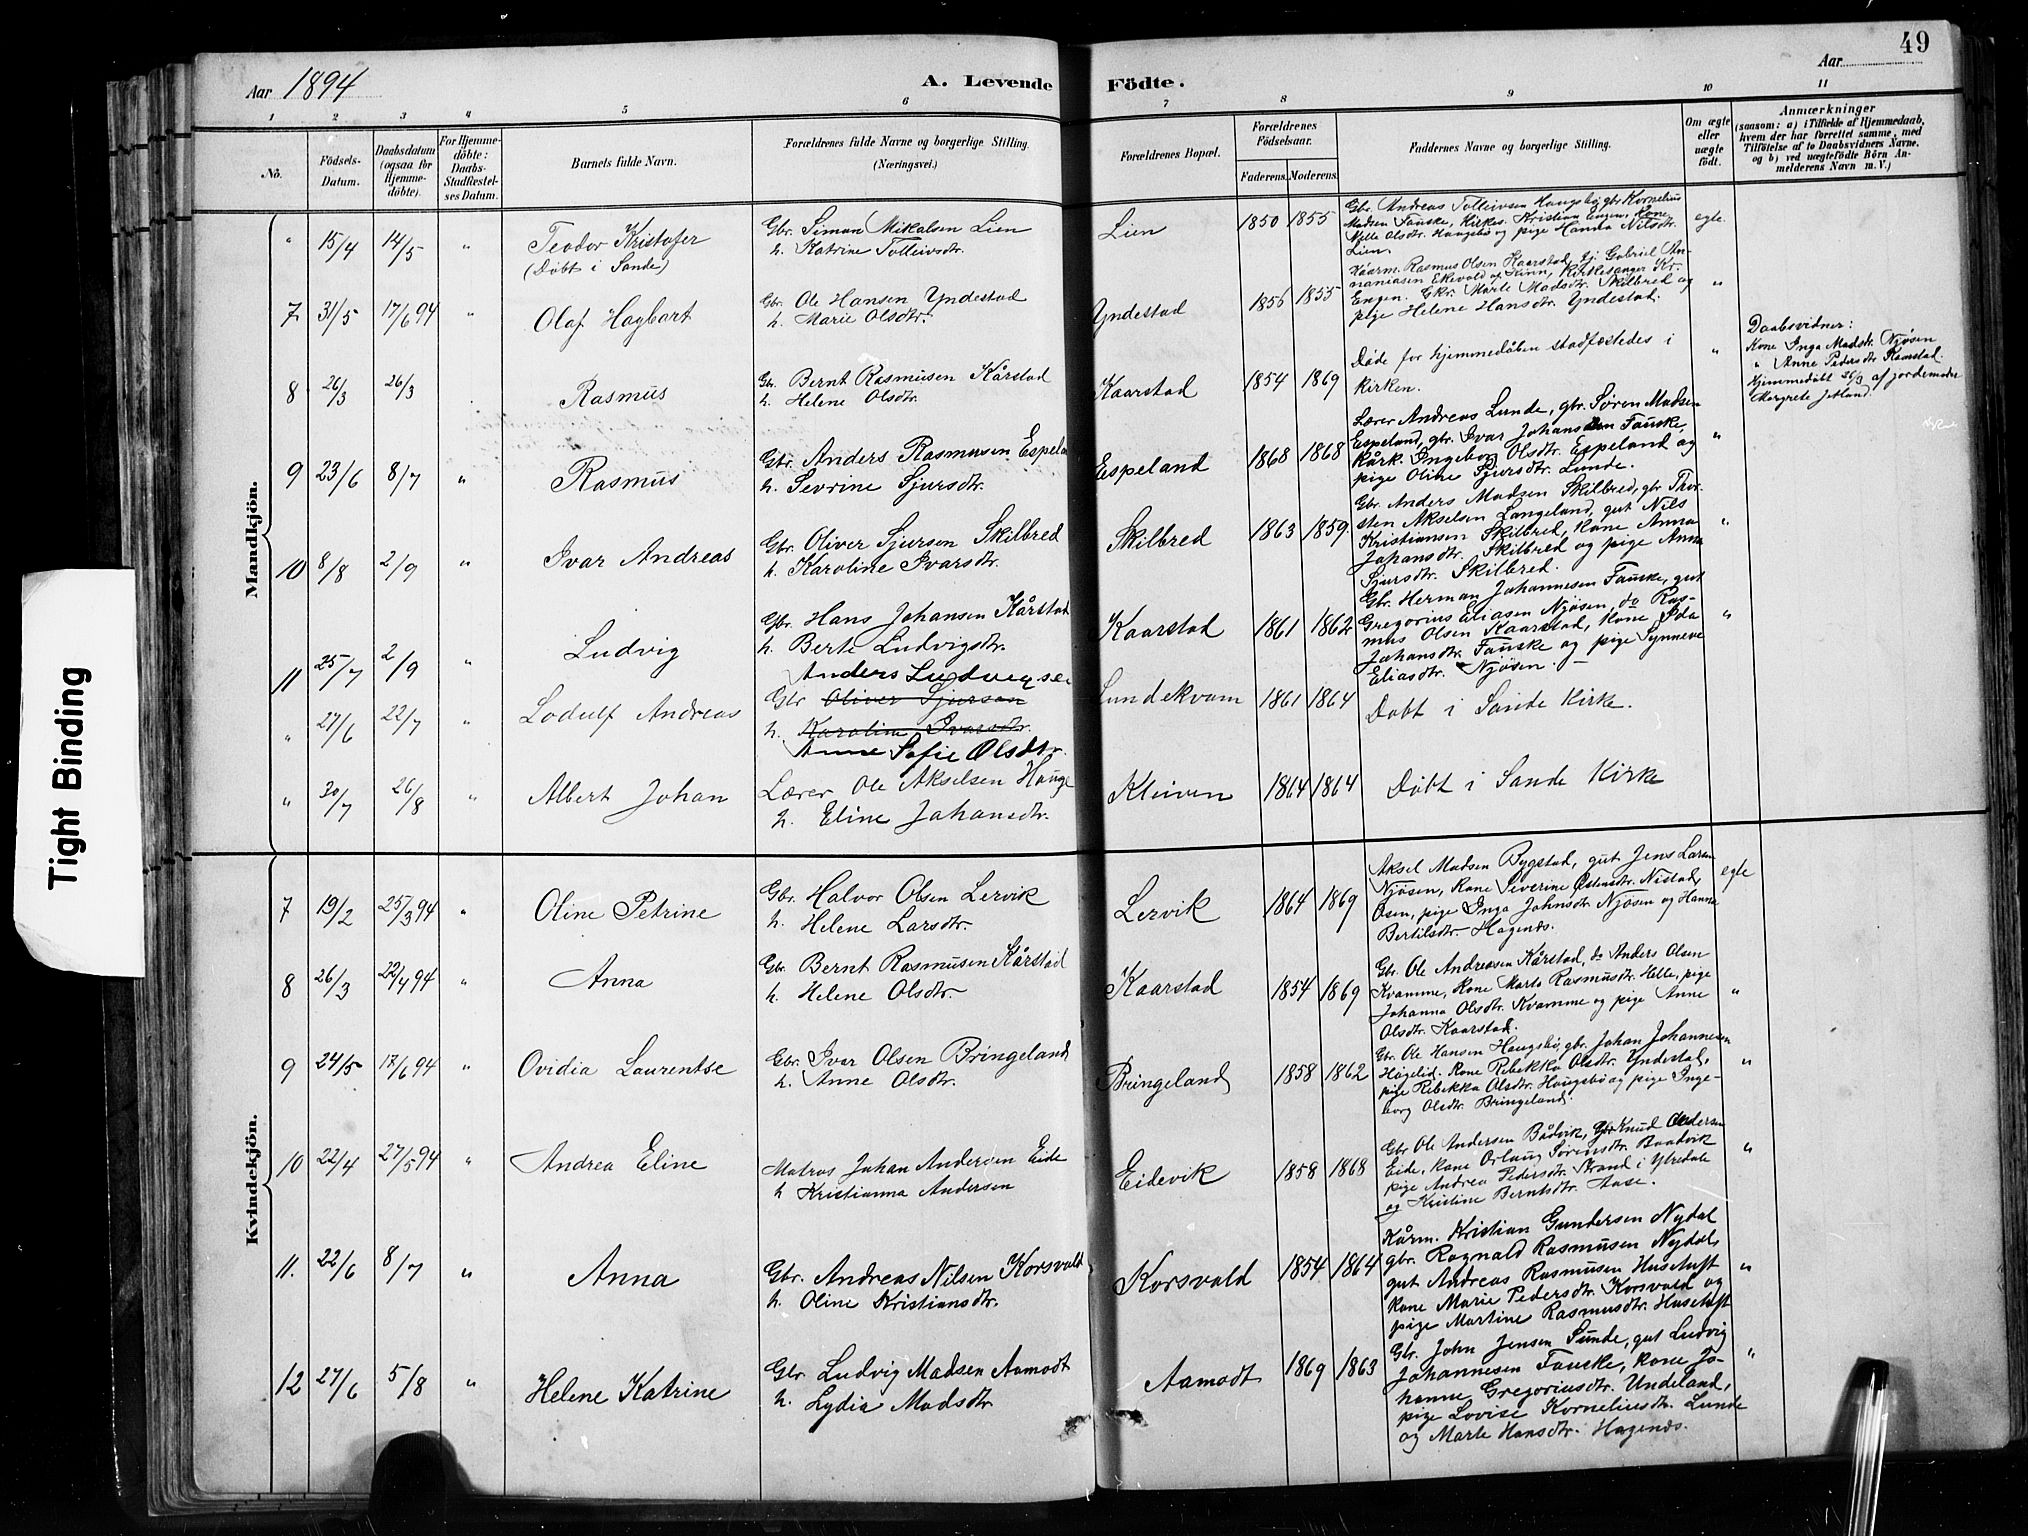 49
Aar 1894
A. Levende Fødte.
Aar
1 2 3 4 5 6 7 8 9 10 11
No.
Födsels-Datum.
Daabsdatum (ogsaa for Hjemme-döbte).
For Hjemme-döbte: Daabs-Stadfæstel-ses Datum.
Barnets fulde Navn.
Forældrenes fulde Navne og borgerlige Stilling.
(Næringsvei.)
Forældrenes Bopæl.
Forældrenes Födselsaar.
Faderens. Moderens.
Faddernes Navne og borgerlige Stilling.
Om ægte eller uægte födt.
Anmærkninger
(saasom: a) i Tilfælde af Hjemmedaab,
hvem der har forrettet samme, med
Tilföielse af to Daabsvidners Navne.
og b) ved uægtefödte Börn An-
melderens Navn m. V.)
Mandkjön.
" 15/4 14/5 " Teodor Kristofer
(Døbt i Sande)
Gbr. Simon Mikalsen Lien
h. Katrine Tolleivsdtr.
Lien 1850 1855
Gbr. Andreas Tolleivsen Haugsbø, gbr Kornelius
Madsen Fauske, Kirkes. Kristian Engen, Kone
Nille Olsdtr. Haugsbø og pige Hanna Nilsdtr.
Lien
egte
7 31/5 17/6 94 " Olaf Hagbart
Gbr. Ole Hansen Yndestad
h. Marie Olsdtr.
Yndestad 1856 1855
Kaarm. Rasmus Olsen Kaarstad, Gabriel An-
naniasen Ekevold af Kinn, Kirkesanger Kr.
Engen. Gkr. Marte Madsdtr. Skilbred og
pige Helene Hansdtr. Yndestad.
"
8 26/3 26/3 Rasmus
Gbr. Bernt Rasmusen Kårstad
h. Helene Olsdtr.
Kaarstad 1854 1869
Døde før hjemmedåben stadfæstedes i
kirken.
"
Daabsvidner:
Kone Inga Madsdtr. Njøsen
" Anne Pedersdtr Kaarstad.
Hjemmedøbt 26/3 af jordemoder
Margrete Jetland.
9 23/6 8/7 " Rasmus
Gbr. Anders Rasmusen Espela
h. Sevrine Sjursdtr.
Espeland 1868 1868
Lærer Andreas Lunde, gbr. Søren Madsen
Espeland, gbr. Ivar Johansen Fauske,
Kårk. Ingeborg Olsdtr. Espeland og
pige Oline Sjursdtr. Lunde.
"
10 8/8 2/9 " Ivar Andreas
Gbr. Oliver Sjursen Skilbred
h. Karoline Ivarsdtr.
Skilbred 1863 1859.
Gbr. Anders Madsen Skilbred, gbr Thor-
sten Akselsen Langeland, gut Nils
Kristiansen Skilbred, Kone Anna
Johansdtr. Skilbred og pige Anna
Sjursdtr. Skilbred.
"
11 25/7 2/9 " Ludvig
Gbr. Hans Johansen Kårstad
h. Berte Ludvigsdtr.
Kaarstad 1861 1862
Gbr. Herman Johannesen Fauske, gut
Gregorius Eliasen Njøsen, do Ras-
mus Olsen Kaarstad, Kone Ida
Johansdtr. Fauske og pige Synneve
Eliasdtr. Njøsen.
"
" 27/6 22/7 " Lodulf Andreas
Anders Ludvigsen
Gbr Oliver Sjursen
h. Karoline Ivarsdtr.
Anne Sofie Olsdtr.
Lundekvam 1861 1864
Døbt i Sande Kirke.
" 30/7 26/8 " Albert Johan
Lærer Ole Akselsen Hauge
h. Eline Johansdtr.
Kleiven 1864 1864
Døbt i Sande Kirke
Kvindekjön.
7 19/2 25/3 94 " Oline Petrine
Gbr. Halvor Olsen Lervik
h. Helene Larsdtr.
Lervik 1864 1869
Aksel Madsen Bygstad, gut Jens Larsen
Njøsen, Kone Severine Østensdtr. Nistad,
Osen, pige Inga Johnsdtr. Njøsen og Hanna
Bertilsdtr. Hagenæs.
egte
8 26/3 22/4 94 " Anna
Gbr. Bernt Rasmusen Kårstad
h. Helene Olsdtr.
Kaarstad 1854 1869
Gbr. Ole Andreasen Kårstad, do Anders Olsen
Kvamme, Kone Marte Rasmusdtr. Helle, pige
Johanna Olsdtr. Kvamme og pige Anne
Olsdtr. Kaarstad.
"
9 24/5 17/6 94 " Ovidia Laurentse
Gbr. Ivar Olsen Bringeland
h. Anne Olsdtr.
Bringeland 1858 1862
Gbr. Ole Hansen Haugsbø, gbr. Johan Johannesen
Høgelid. Kone Rebekka Olsdtr. Yndestad,
pige Rebekka Olsdtr. Haugsbø og pige Inge-
borg Olsdtr. Bringeland.
"
10 22/4 27/5 94 " Andrea Eline
Matros Johan Andersen Eide
h Kristianna Andersen
Eidevik 1858 1868
Gbr Ole Andersen Bådvik, Gbr Knud Andersen
Eide, kone Orlaug Sørensdtr. Baadvik
pige Andrea Pedersdtr. Strand i Ytredale
og Kristine Berntsdtr. Aase.
"
11. 22/6 8/7 " Anna
Gbr. Andreas Nilsen Korsvald
h. Oline Kristiansdtr.
Korsvald 1854 1864
Kårm. Kristian Gundersen Nydal
gbr. Ragnald Rasmusen Nydal,
gut Andreas Rasmusen Husetuft
kone Marie Pedersdtr. Korsvald og
pige Martine Rasmusdtr. Husetuft
"
12 27/6 5/8 " Helene Katrine
Gbr Ludvig Madsen Aamodt
h. Lydia Madsdtr.
Aamodt 1869 1863
Gbr. John Jensen Sunde, gut Ludvig
Johannesen Fauske, kone Jo-
hanne Gregoriusdtr. Undeland,
pige Lovise Korneliusdtr. Lunde
og Marte Hansdtr. Hagenæs.
"
Tight Binding